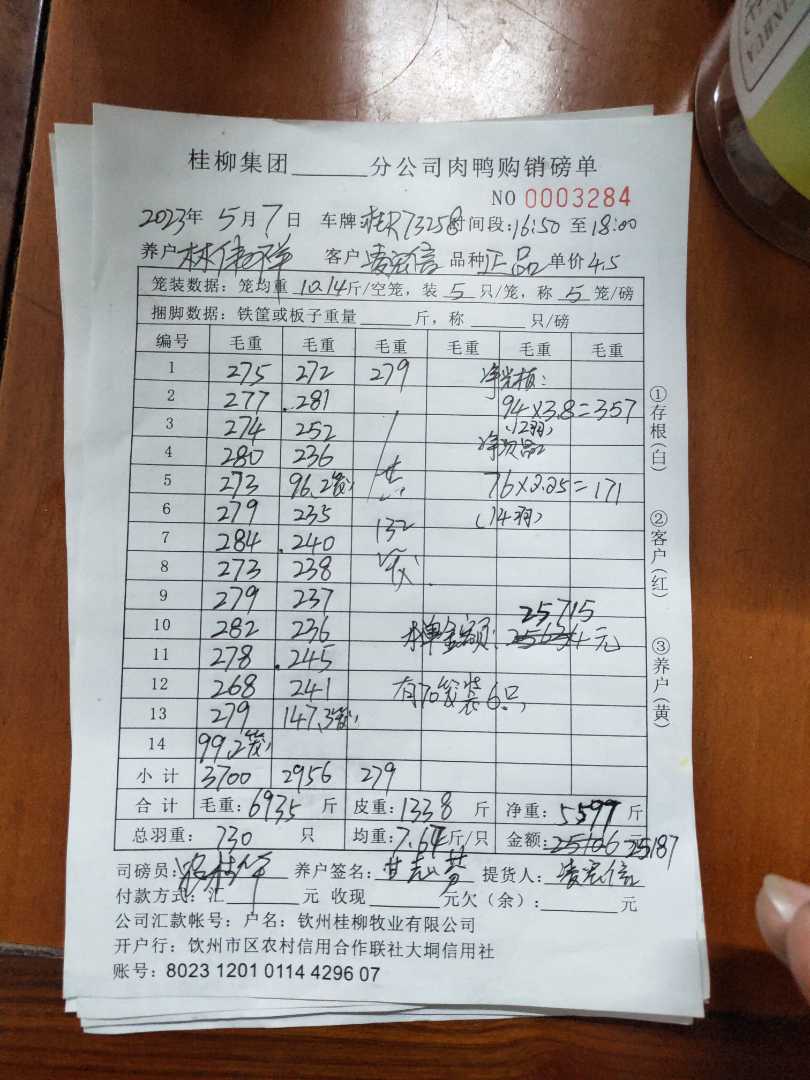 桂柳集团______分公司肉鸭购销磅单
NO 0003284
2023年 5月 7日 车牌:桂R73258 时间段:16:50 至 18:00
养户 林伟祥 客户 凌宏信 品种 正品 单价 4.5
笼装数据:笼均重 10.14 斤/空笼,装 5 只/笼,称 5 笼/磅
捆脚数据:铁筐或板子重量______斤,称______只/磅
编号 毛重 毛重 毛重 毛重 毛重 毛重
1 275 272 279 净光板:
2 277 .281 94×3.8=357
3 274 252 (12羽)
4 280 236 净次品
5 273 96.2笼) 共 76×2.25=171
6 279 235 (14羽)
7 284 .240 132
8 273 238 笼
9 279 237 25,715
10 282 236 金额: 元
11 278 .245
12 268 241 有70笼装6只,
13 279 147.3笼)
14 99.2笼)
小计 3700 2956 279
合计 毛重:6935 斤 皮重:1338 斤 净重:5597 斤
总羽重: 730 只 均重:7.67 斤/只 金额:25106 元 25187
司磅员: 养户签名: 提货人:凌宏信
付款方式:汇______元 收现______元欠(余):______元
公司汇款帐号:户名:钦州桂柳牧业有限公司
开户行:钦州市区农村信用合作联社大垌信用社
账号:8023 1201 0114 4296 07
①存根(白)
②客户(红)
③养户(黄)